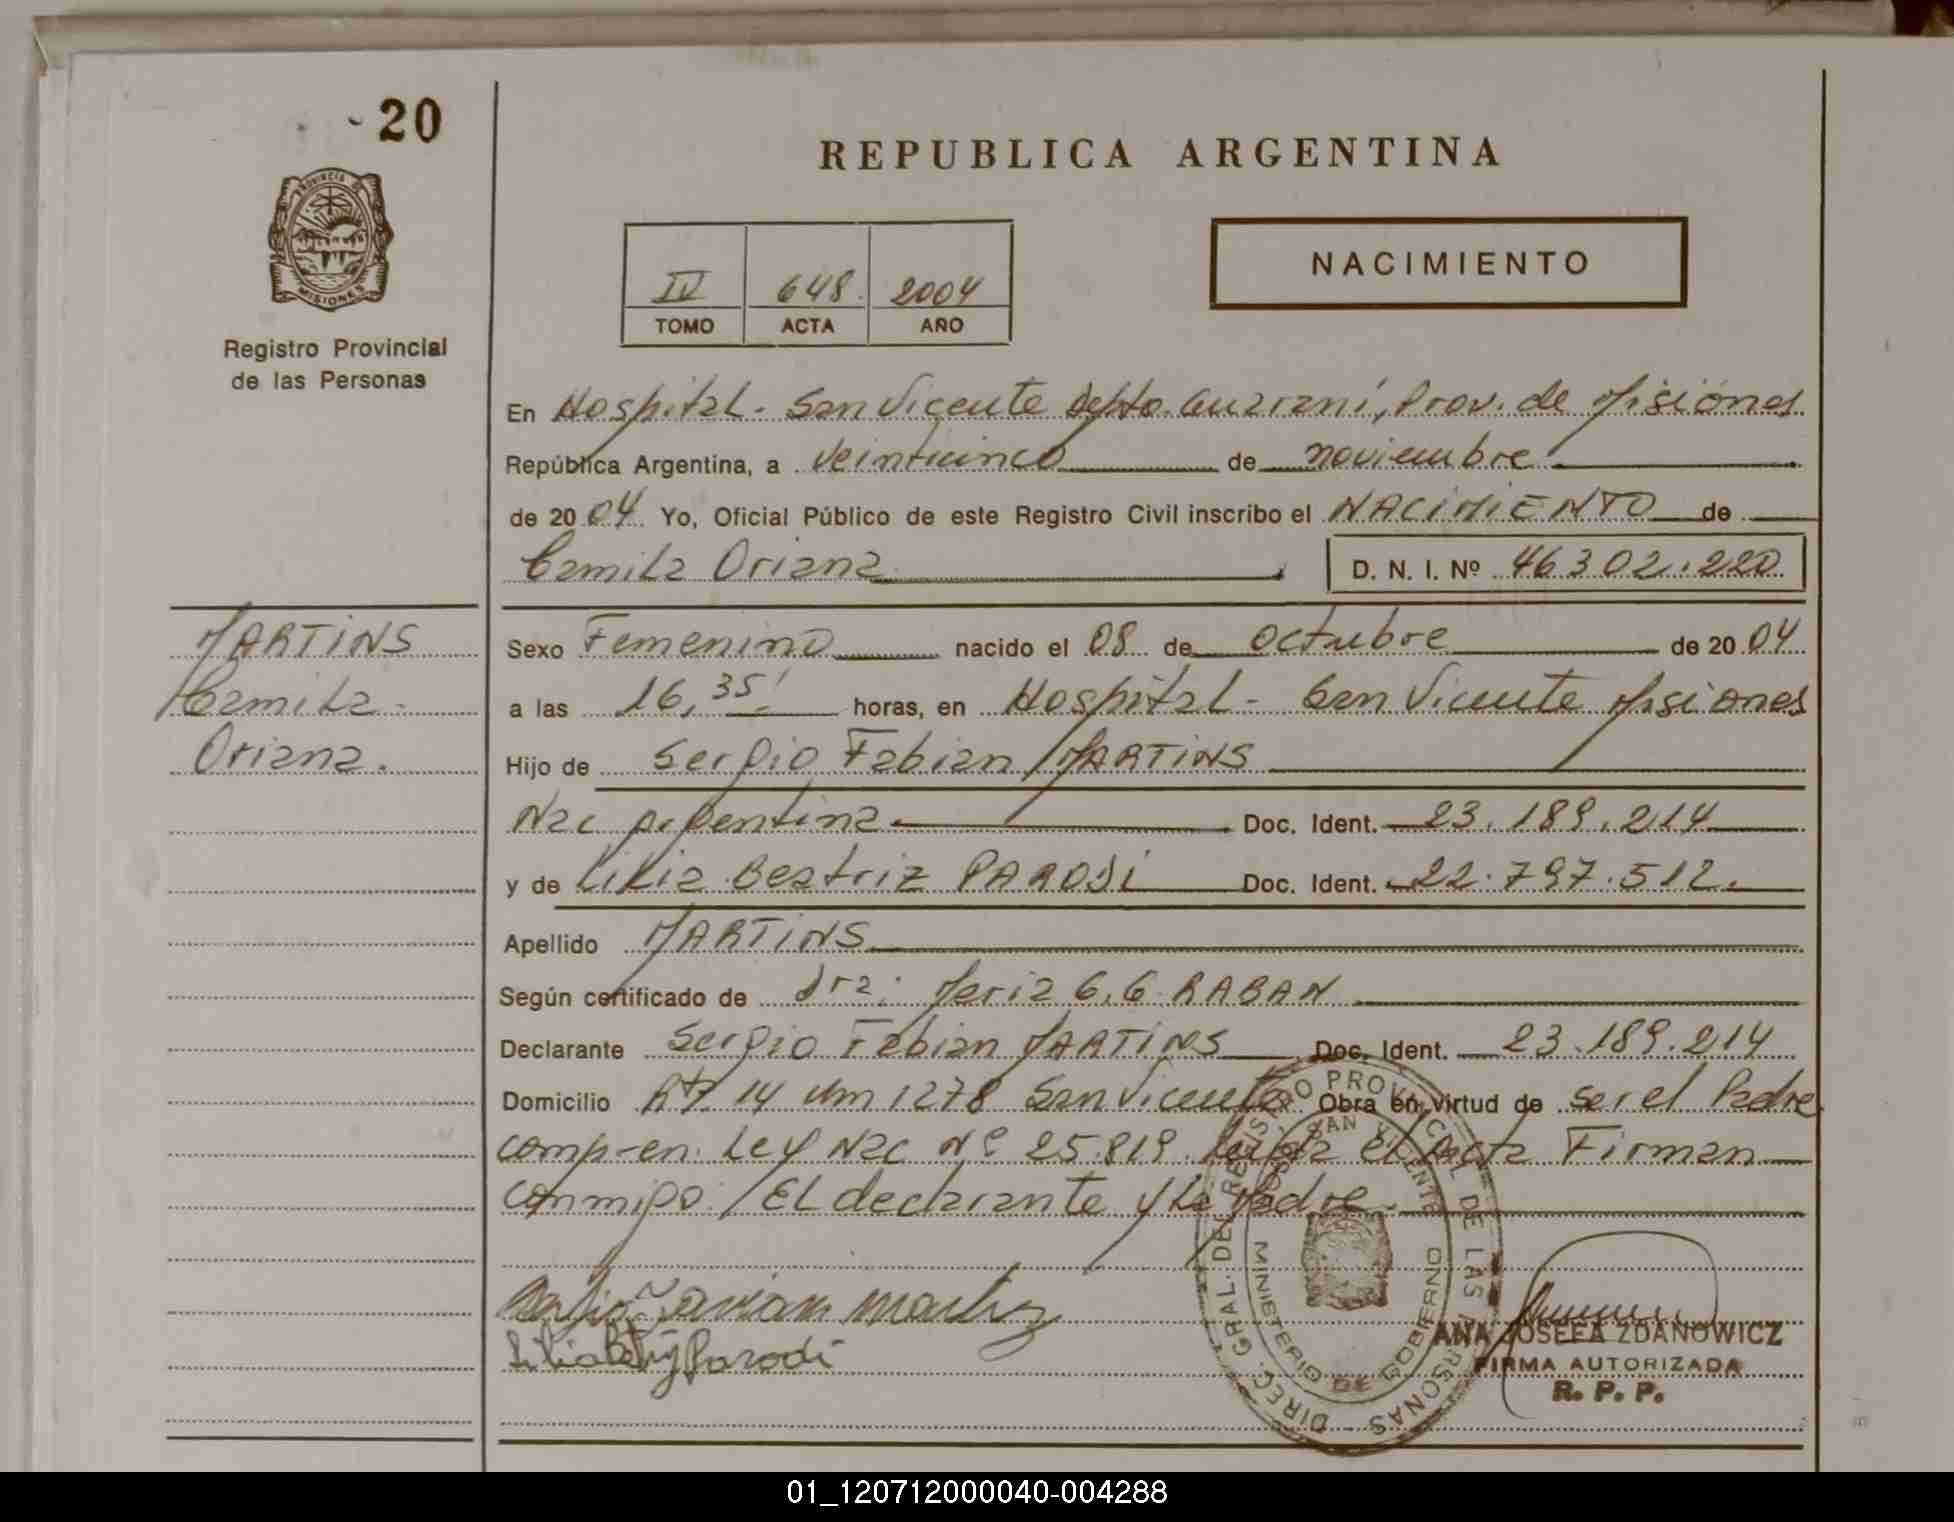 20
REPUBLICA ARGENTINA
PROVINCIA DE
MISIONES
Registro Provincial
de las Personas
NACIMIENTO
IV 648 2004
TOMO ACTA AÑO
En Hospital - San Vicente Depto. Guaraní, Prov. de Misiones
República Argentina, a veinticinco de noviembre
de 2004 Yo, Oficial Público de este Registro Civil inscribo el NACIMIENTO de
Camila Oriana D. N. I. Nº 46302.220
MARTINS
Camila -
Oriana.
Sexo Femenino nacido el 08 de octubre de 2004
a las 16,35' horas, en Hospital - San Vicente Misiones
Hijo de Sergio Fabian MARTINS
Nac Argentina Doc. Ident. 23.189.214
y de Lilia Beatriz PARODI Doc. Ident. 22.797.512.
Apellido MARTINS
Según certificado de dra: Maria G. G. RABAN
Declarante Sergio Fabian MARTINS Doc. Ident. 23.189.214
Domicilio Rta. 14 Km 1278 San Vicente Obra en virtud de ser el Padre
comp-en Ley Nac Nº 25.819 el Acta Firman
conmigo: El declarante y la madre.
Lilia Parodi
DIREC. GRAL. DEL REGISTRO PROVINCIAL DE LAS PERSONAS
SAN VICENTE
MINISTERIO DE GOBIERNO
ANA JOSEFA ZDANOWICZ
FIRMA AUTORIZADA
R. P. P.
01_120712000040-004288